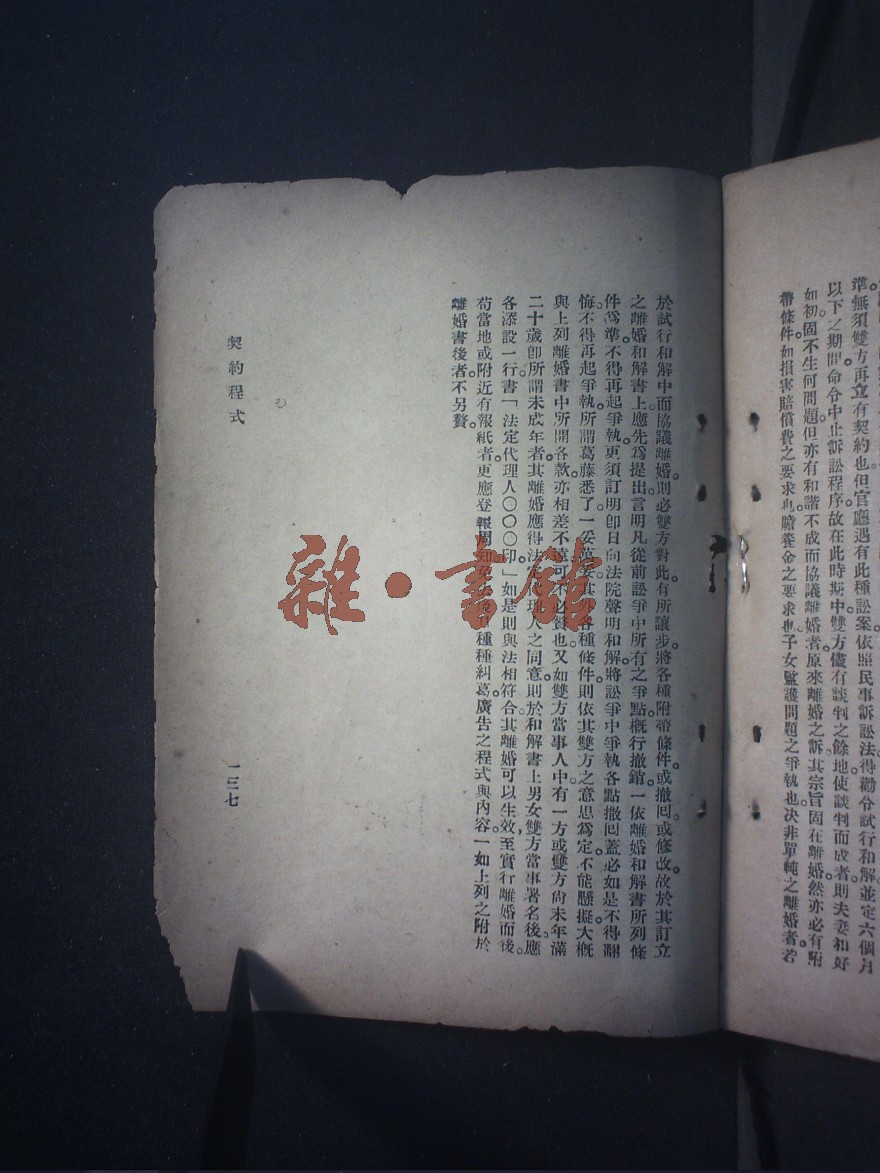 準無須雙方再立有契約也但官廳遇有此種訟案依照民事訴訟法得勸令試行和解並定六個月
以下之期間命令中止訴訟程序故在此時期中雙方儘有談判之餘地使談判而成者則夫妻和好
如初固不生何問題但亦有和諧不成而協議離婚者原來離婚之訴其宗旨固在離婚然亦必有附
帶條件如損害賠償費之要求也贍養金之要求也子女監護問題之爭執也決非單純之離婚者若
於試行和解中而協議離婚則必雙方對此有所讓步將各種附帶條件或撤回或修改故於其訂立
之離婚和解書上應先為提出言明凡從前訟爭中所有之爭點概行撤銷一依離婚和解書所列條
件為準不得再起爭執更須訂明卽日向法院聲明和解將訟爭中爭執各點撤回蓋必如是不得翻
悔不得再起爭執所謂葛藤悉了一妥萬妥其各種條件則依其雙方之意思為定不能懸擬大概
與上列離婚書中所開各款亦相差不遠可不必贅也又如雙方當事人中有一方或雙方尚未年滿
二十歲卽所謂未成年者其離婚應得法定代理人之同意則於和解書上男女雙方當事署名後應
各添設一行書「法定代理人〇〇〇印」如是則與法相符合其離婚可以生效至實行離婚而後
苟當地或附近有報紙者更應登報周知免種種糾葛廣告之程式與內容一如上列之附於
離婚書後者不另贅
契約程式
一三七
雜·書館